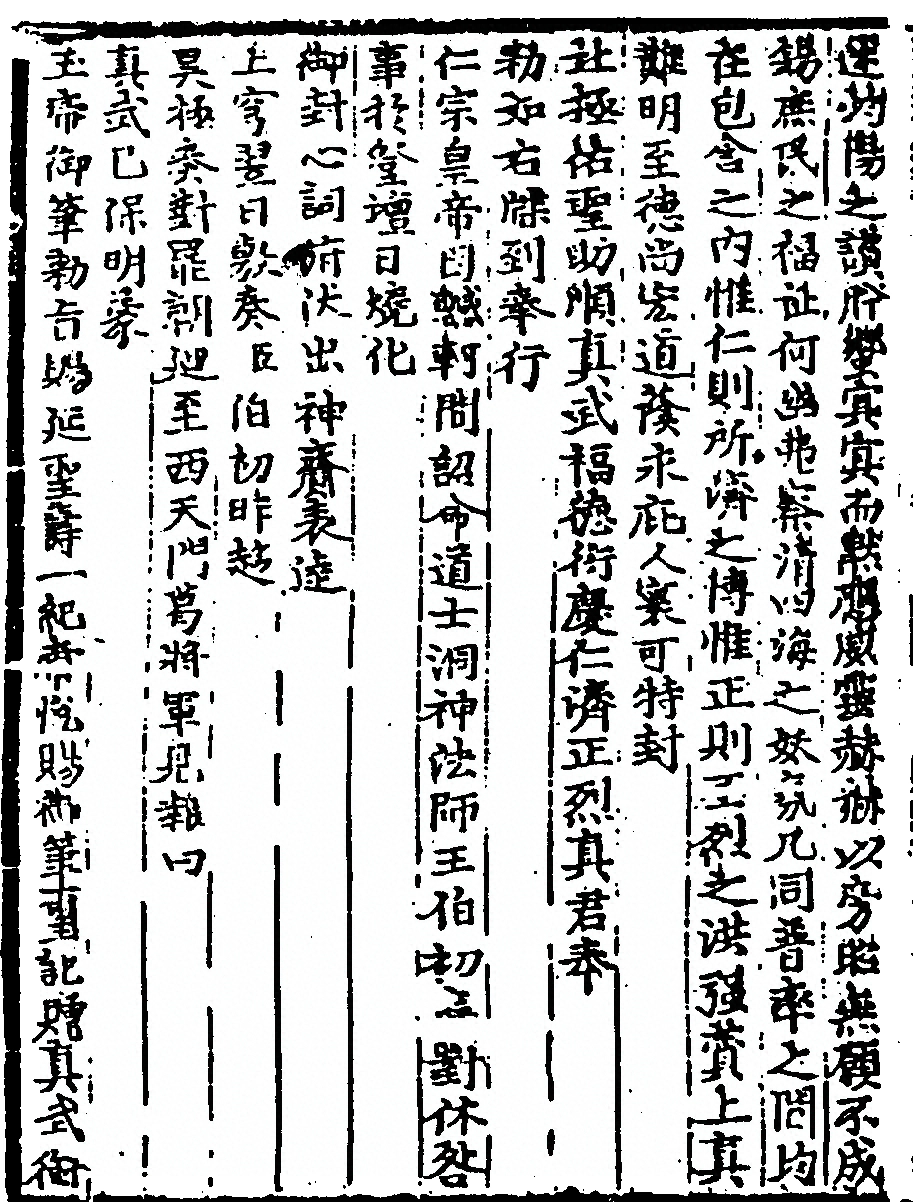 迷灼陽之讃肹蠁寘寘而黙應威靈赫赫以旁昭無願不成
錫庶民之福祉何幽弗察清四海之妖氛凡同普率之間均
在包含之内惟仁則所濟之博惟正則工烈之洪强賛上真
難明至德尚宏道䕃永庇人寰可特封
社極佑聖助順真武福德衍慶仁濟正烈真君奉
勅如右牒到奉行
仁宗皇帝因轗軻間詔命道士洞神法師王伯初 對休咎
事於堂壇日燒化
御封心詞俯伏出神齎表逵
上穹翌日敷奏臣伯初昨赴
昊極奏對罷朝廻至西天門葛將軍見報曰
真武已保明蒙
玉帝御筆勅旨賜延聖壽一紀 賜御筆 記贈真武衛